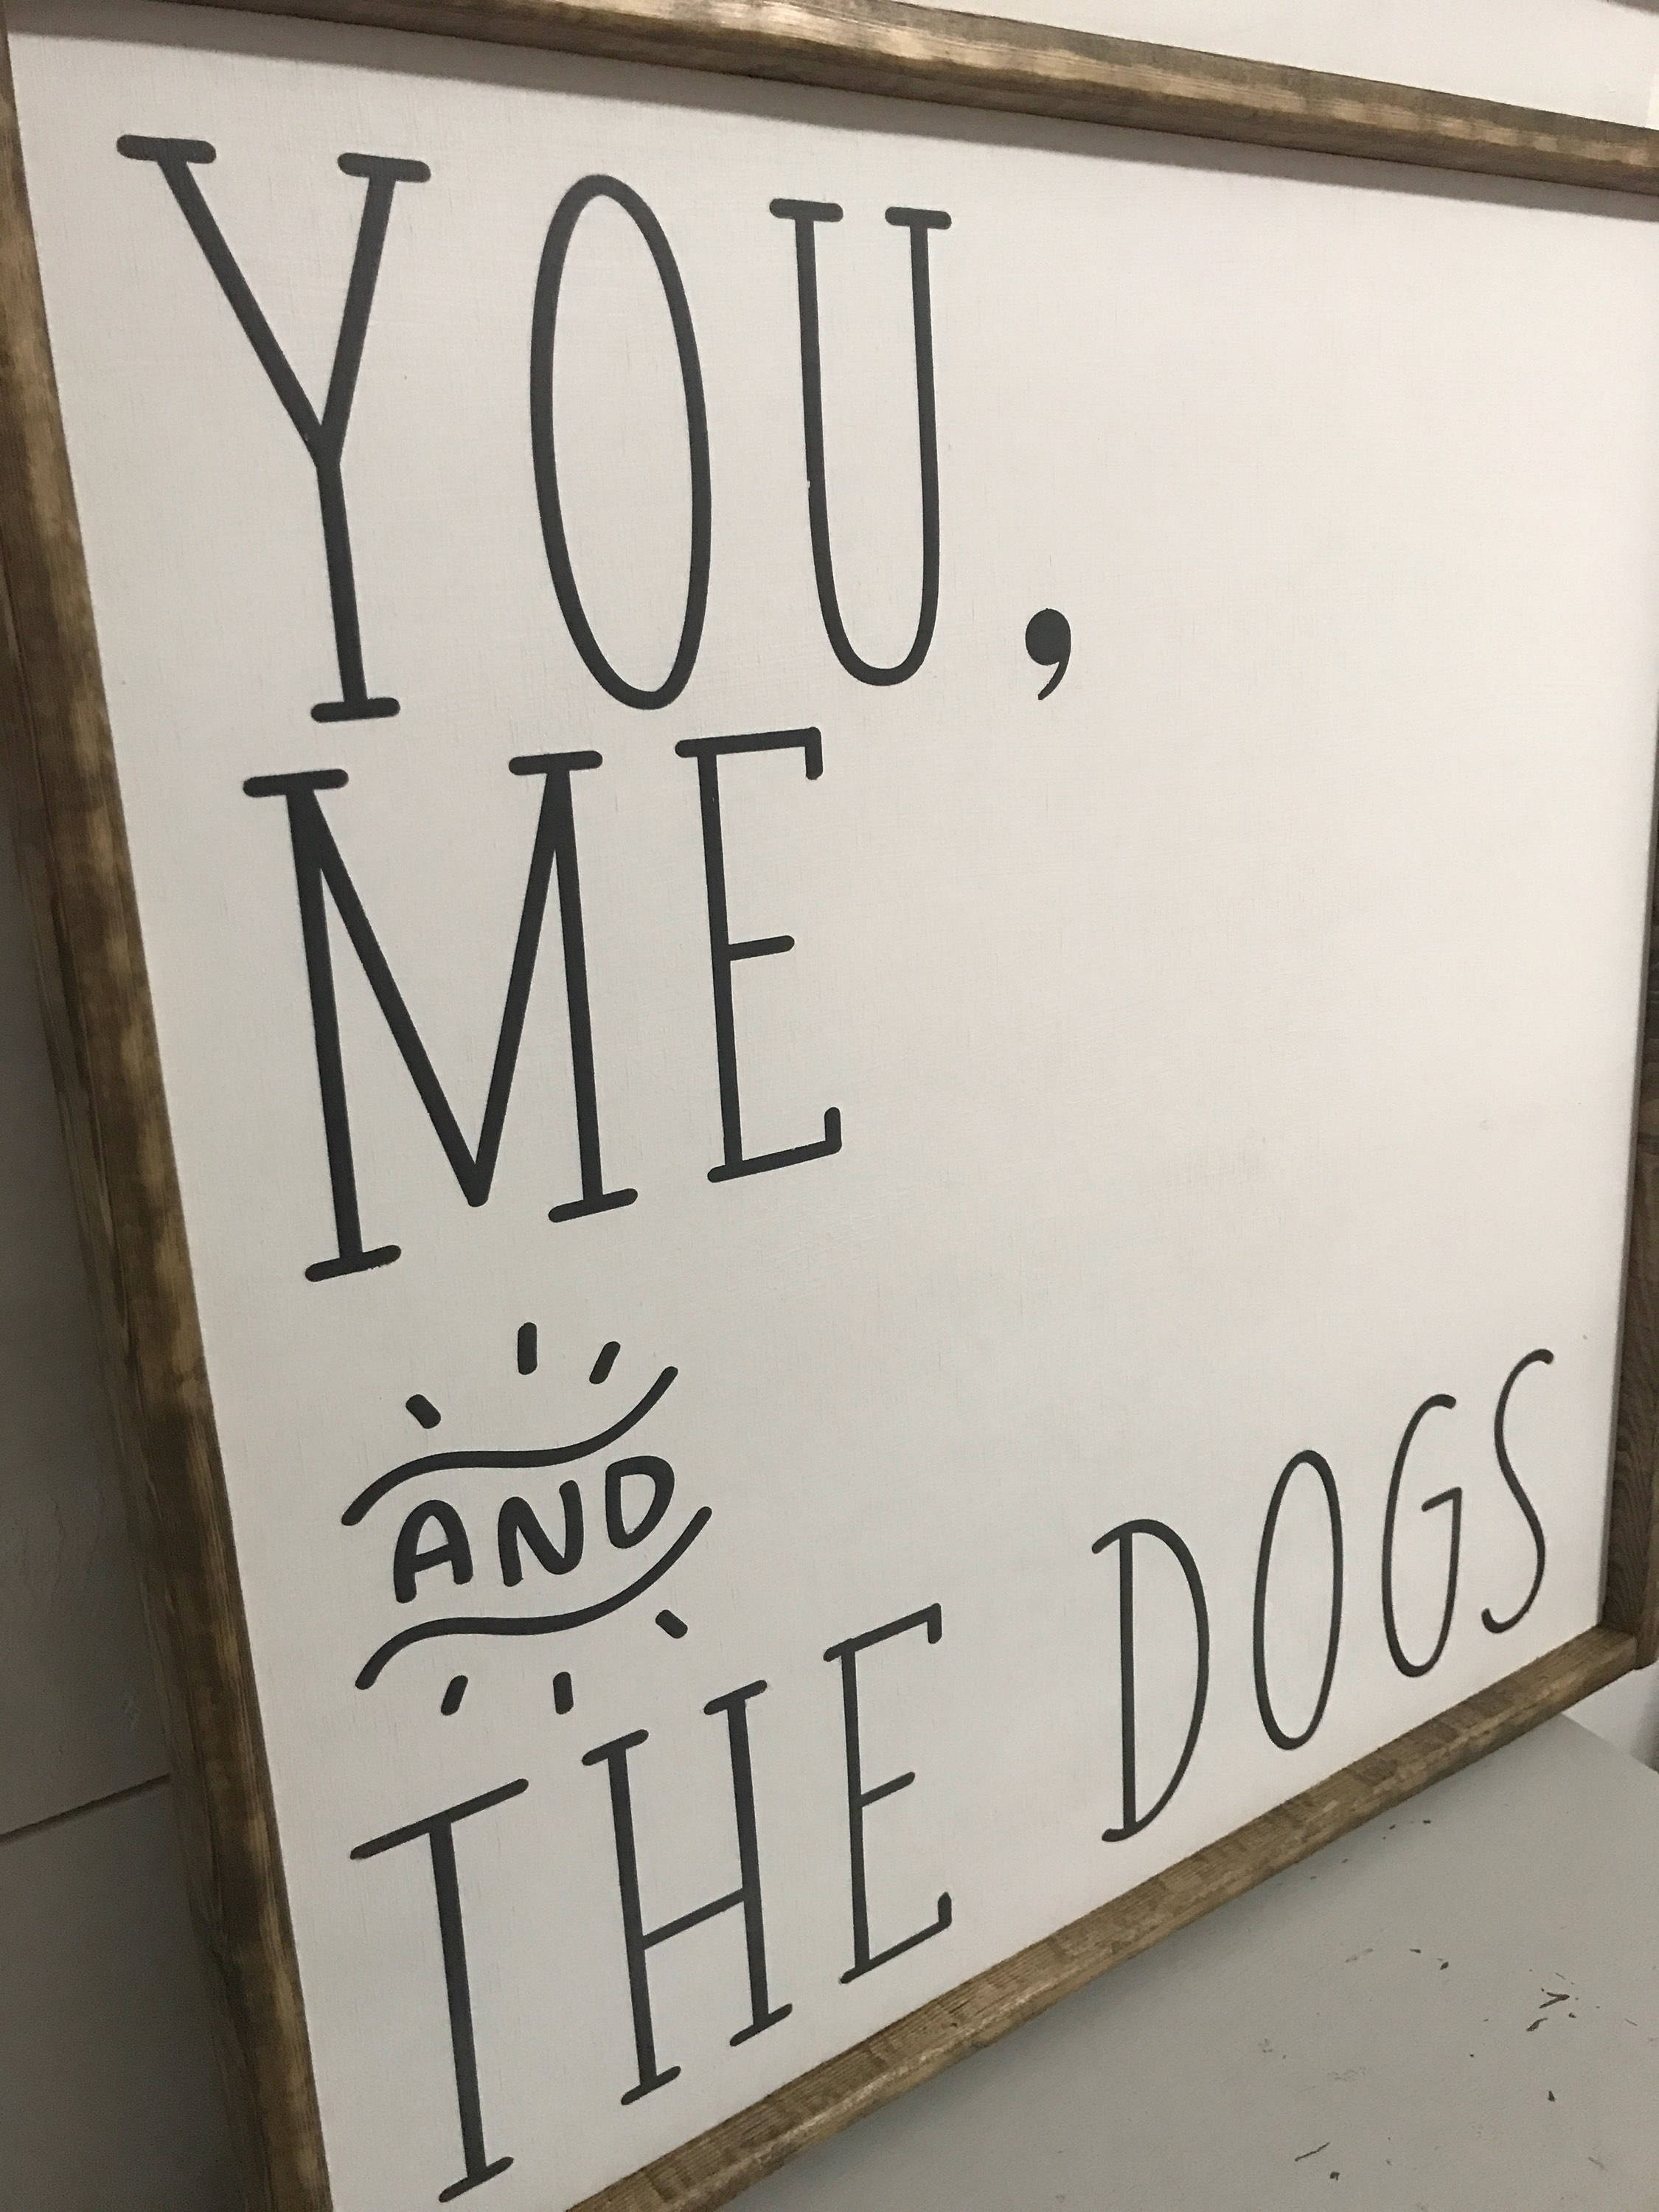 YOU,
ME
AND
THE DOGS